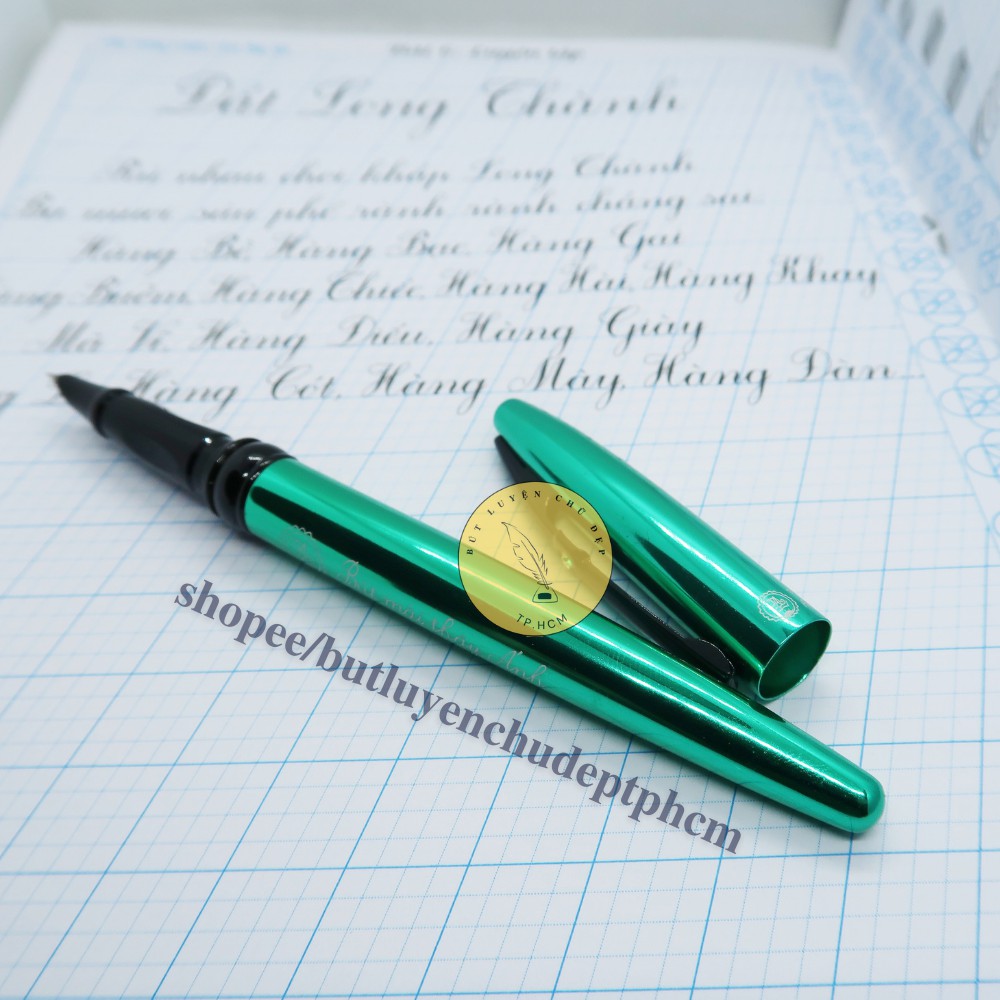 Đất Long Thành
Rủ nhau chơi khắp Long Thành
Ba mươi sáu phố rành rành chẳng sai
Hàng Bồ, Hàng Bạc, Hàng Gai
Hàng Buồm, Hàng Thiếc, Hàng Hài, Hàng Khay
Mã Vĩ, Hàng Điếu, Hàng Giày
Hàng Cót, Hàng Mây, Hàng Đàn
BÚT LUYỆN CHỮ ĐẸP
TP.HCM
shopee/butluyenchudeptphcm